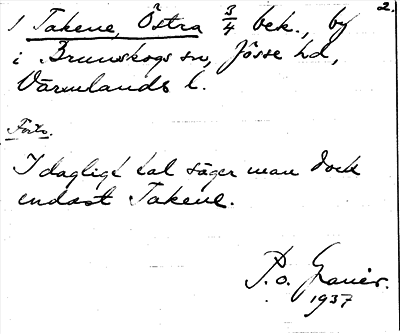 2.
1 Takene, Östra 3/4 bek., by
i Brunskogs sn, Jösse hd,
Värmlands l.
Forts.
I dagligt tal säger man dock
endast Takene.
P. o. Granér.
1937